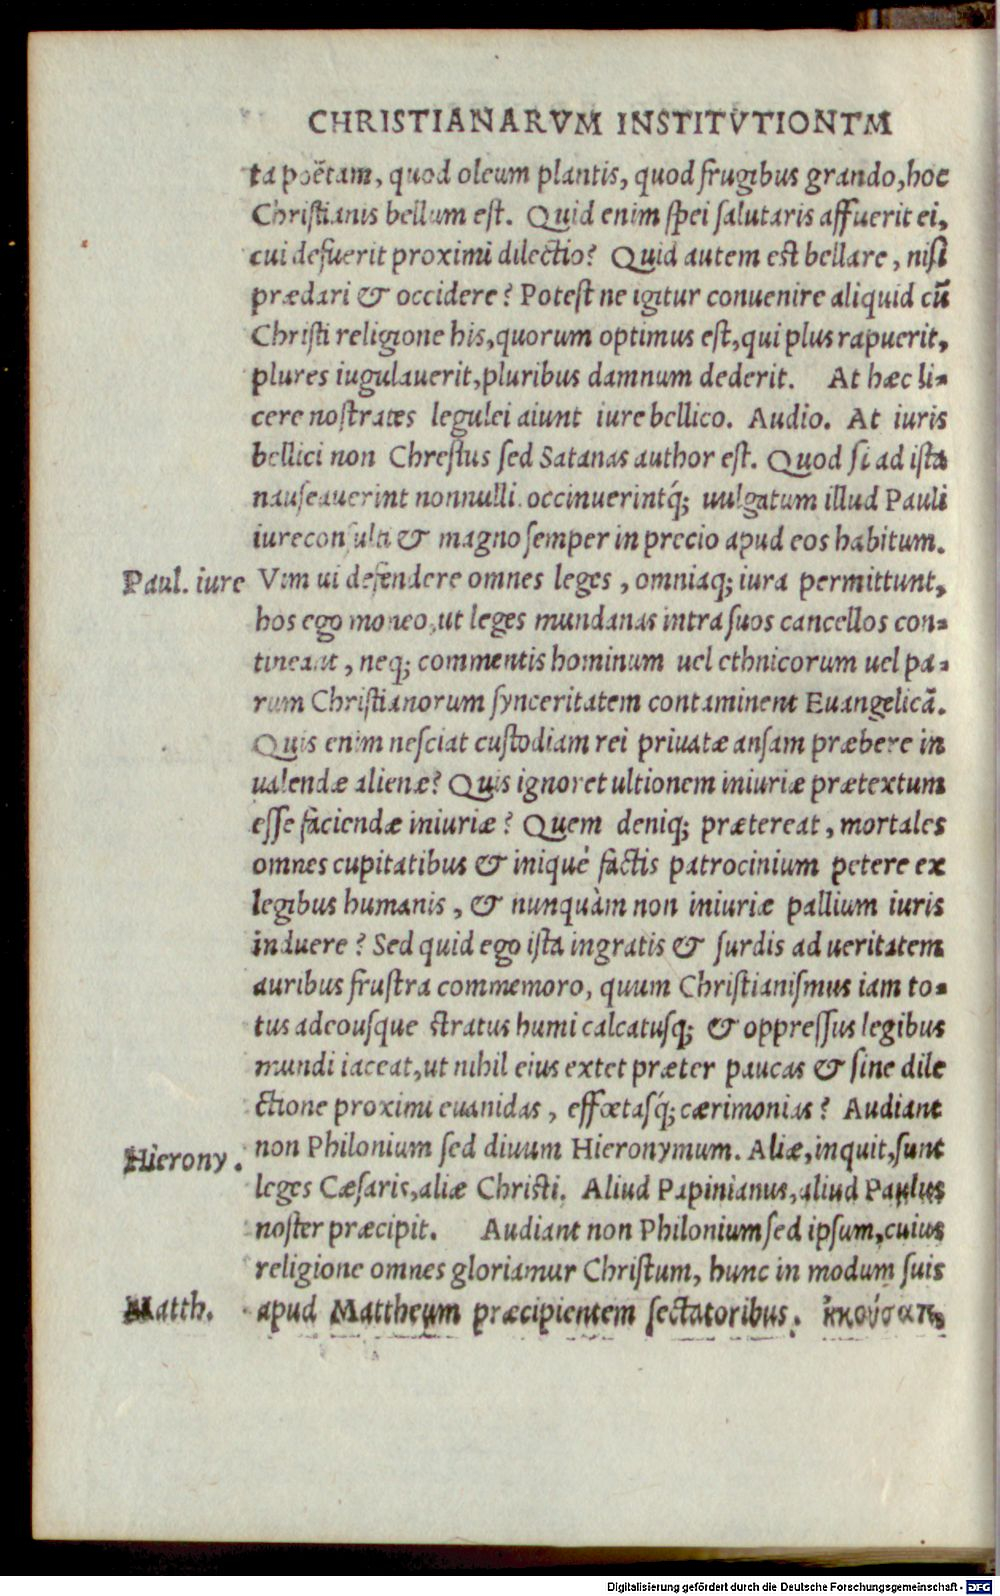 CHRISTIANARVM INSTITVTIONTM
ta poẽtam, quod oleum plantis, quod frugibus grando, hoc
Christianis bellum est. Quid enim spei salutaris affuerit ei,
cui defuerit proximi dilectio? Quid autem est bellare, nisi
prædari & occidere? Potest ne igitur conuenire aliquid cũ
Christi religione his, quorum optimus est, qui plus rapuerit,
plures iugulauerit, pluribus damnum dederit. At hæc li-
cere nostrates legulei aiunt iure bellico. Audio. At iuris
bellici non Chrestus sed Satanas author est. Quod si ad ista
nauseauerint nonnulli occinuerintq́; uulgatum illud Pauli
iureconsulti & magno semper in precio apud eos habitum.
Paul. iure Vim ui defendere omnes leges, omniaq; iura permittunt,
hos ego moneo, ut leges mundanas intra suos cancellos con-
tineant, neq; commentis hominum uel ethnicorum uel pa-
rum Christianorum synceritatem contaminent Euangelicã.
Quis enim nesciat custodiam rei priuatæ ansam præbere in
uadendæ alienæ? Quis ignoret ultionem iniuriæ prætextum
esse faciendæ iniuriæ? Quem deniq; prætereat, mortales
omnes cupitatibus & iniquè factis patrocinium petere ex
legibus humanis, & nunquàm non iniuriæ pallium iuris
induere? Sed quid ego ista ingratis & surdis ad ueritatem
auribus frustra commemoro, quum Christianismus iam to-
tus adeousque stratus humi calcatusq; & oppressus legibus
mundi iaceat, ut nihil eius extet præter paucas & sine dile
ctione proximi euanidas, effœtasq́; cærimonias? Audiant
Hierony. non Philonium sed diuum Hieronymum. Aliæ, inquit, sunt
leges Cæsaris, aliæ Christi. Aliud Papinianus, aliud Paulus
noster præcipit. Audiant non Philonium sed ipsum, cuius
religione omnes gloriamur Christum, hunc in modum suis
Matth. apud Mattheum præcipientem sectatoribus. ἠκούσατε,
Digitalisierung gefördert durch die Deutsche Forschungsgemeinschaft - DFG